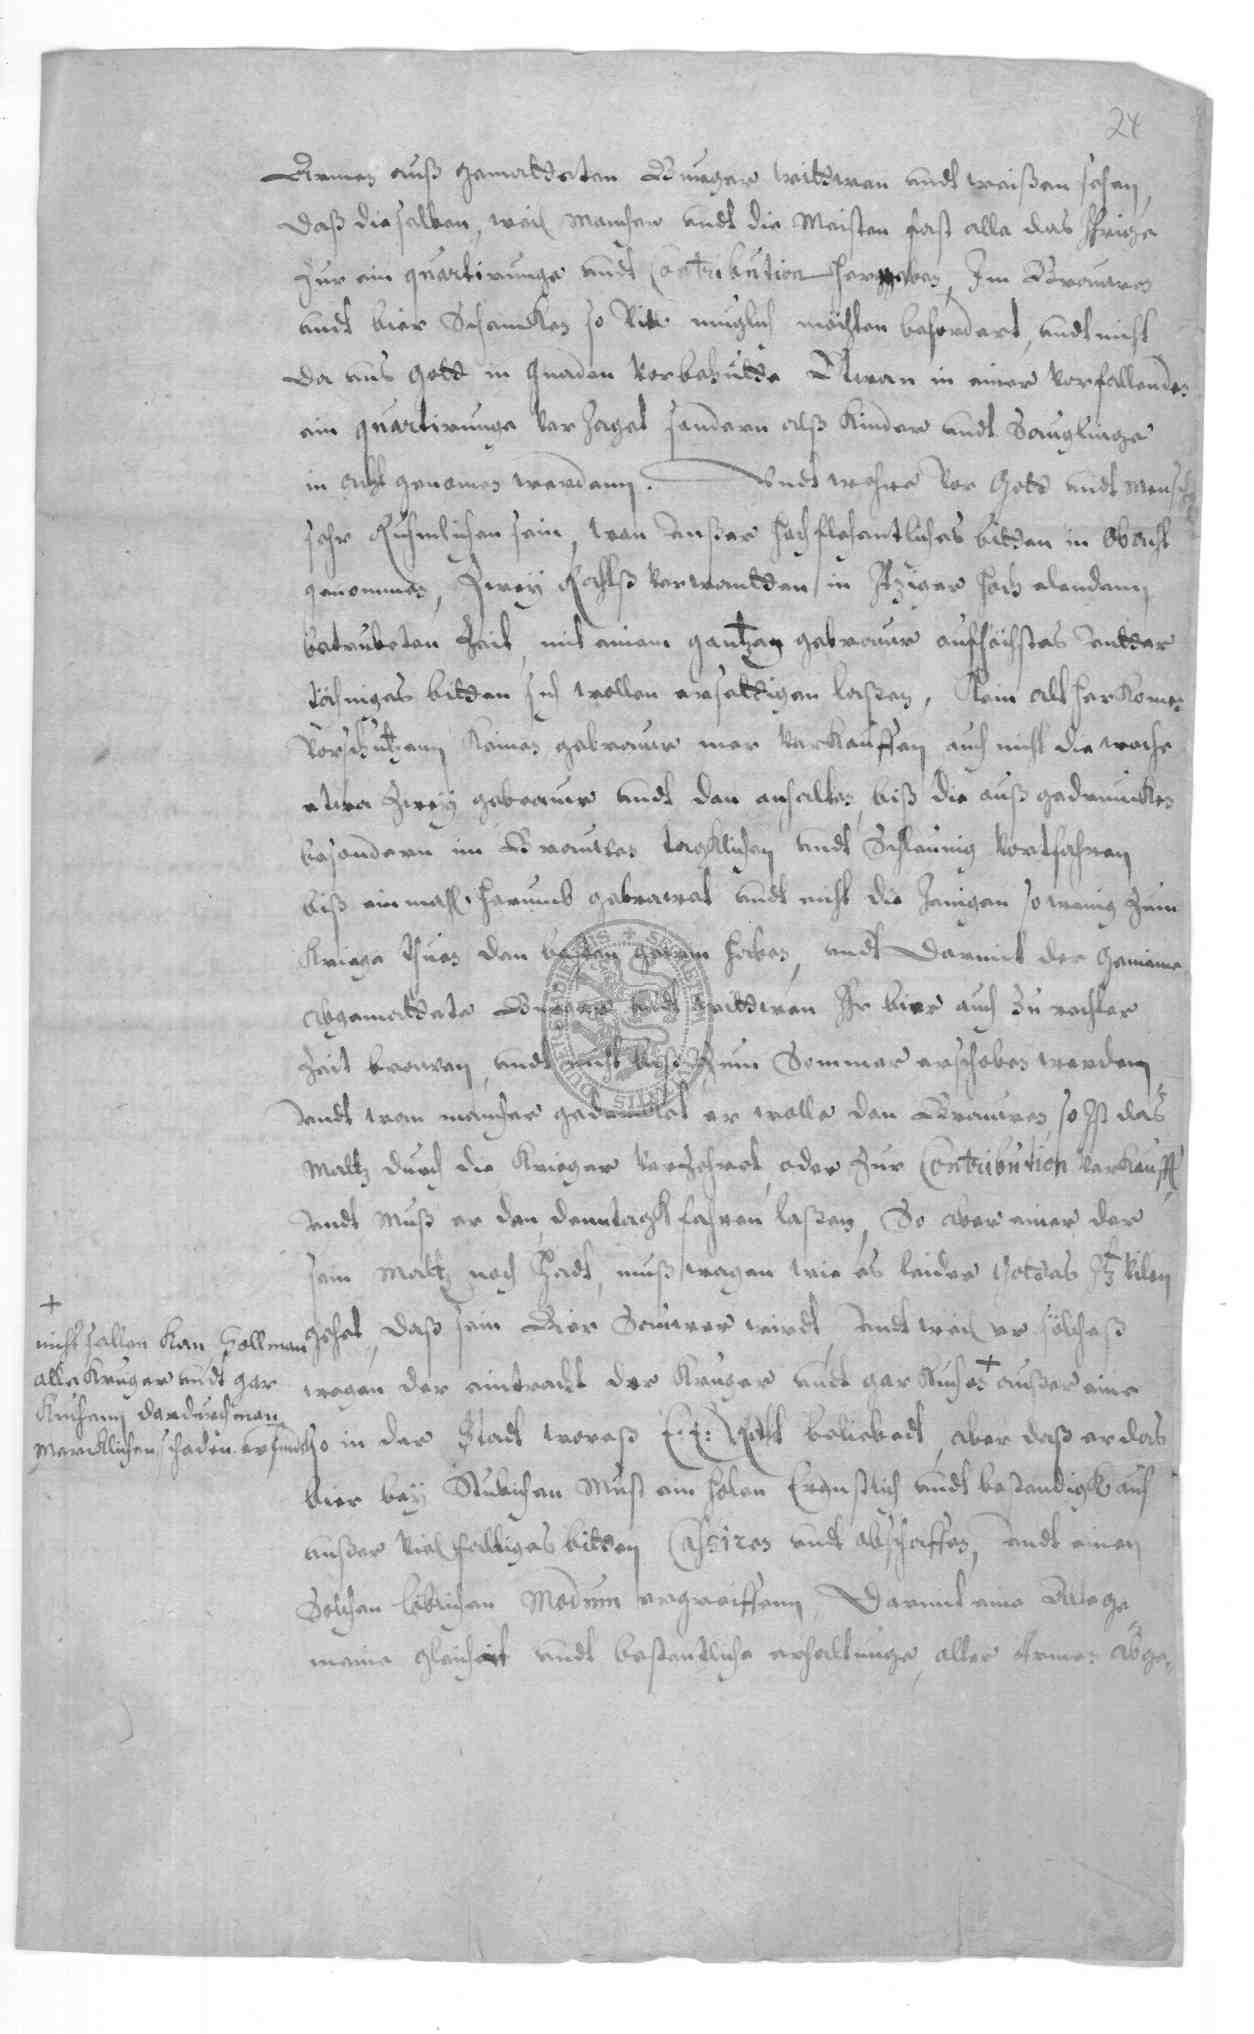 24
Armen auß gematteten Burger witwen undt weißen sehen,
daß dieselben, weil Mancher undt die Meisten fast alle das ihrige
zur ein quartirunge undt Contribution hergeben, Im Brauwen
undt bier Schencken so viel muglich mochten befordert, undt nicht
da uns Gott in Gnaden vor behutte Etwan in einer vorfallenden
ein quartirunge verjaget sondern alß Kinder undt Seuglinge
in acht genomen werdenn. Undt wehre vor Gott undt Mensch
sehr Ruhmlichen sein, wen unßer hochflehentliches bitten in Obacht
genommen, Zwey Rahtß verwantten in itziger hoch elenden
betrubeten Zeit, mit einem gantzen gebrauwe aufhöchstes unther
töhniges bitten sich wollen ersettigen laßen, Kein alt herkomen
vorschutzenn keines gebrauwe mer verkauffen auch nicht die woche
etwa Zwey gebrauwe undt dan anhalten biß die auß gedruncken
besondern im Brauwen tagklichen undt Schleunig vortfahren
biß ein mahl herumb gebrawet undt nicht die Jenigen so wenig zum
Kriege thuen den besten gewin haben, undt darmit der Gemeine
abgemattete Burger undt wittwen Ihr bier auch zu rechter
Zeit brauwen, undt nicht biß zum Sommer erschoben werden
undt wan mancher gedencket er wolle den Brauwen so ist das
Maltz durch die Krieger verzehret, oder zur Contribution verkaufft,
undt Muß er den denntagk fahren laßen, So aber einer der
sein Maltz noch hadt, muß wagen wie es leider Gottes itz vilen
gehet, daß sein Bier Sauwer wirdt, undt weil er solcheß
wegen der eintracht der Kruger undt gar Kuchen + außer eine
so in der Stadt woreß E: E: Raht beliebedt, aber daß er das
bier bey Stubichen Must ein holen Ernstlich undt bestendigk auf
unßer viel faltiges bitten Casiren undt abschaffen, undt einen
Solchen loblichen Modum ergreiffenn, Darmit eine Allege
meine gleicheit undt bestentliche erhaltunge, aller Armen abge,
+
nicht sellen kan, Soll man
alle Kruger undt gar
Kuchenn dardurch man
Mercklichen schaden erfindet